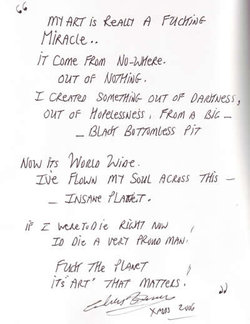 “
MY ART IS REALLY A FUCKING
MIRACLE..
IT COME FROM NO-WHERE.
OUT OF NOTHING.
I CREATED SOMETHING OUT OF DARKNESS,
OUT OF HOPELESSNESS, FROM A BIG —
— BLACK BOTTOMLESS PIT
NOW ITS WORLD WIDE.
I'VE FLOWN MY SOUL ACROSS THIS —
— INSANE PLANET.
IF I WERE TO DIE RIGHT NOW
ID DIE A VERY PROUD MAN.
FUCK THE PLANET
ITS "ART" THAT MATTERS.
”
XMAS 2006